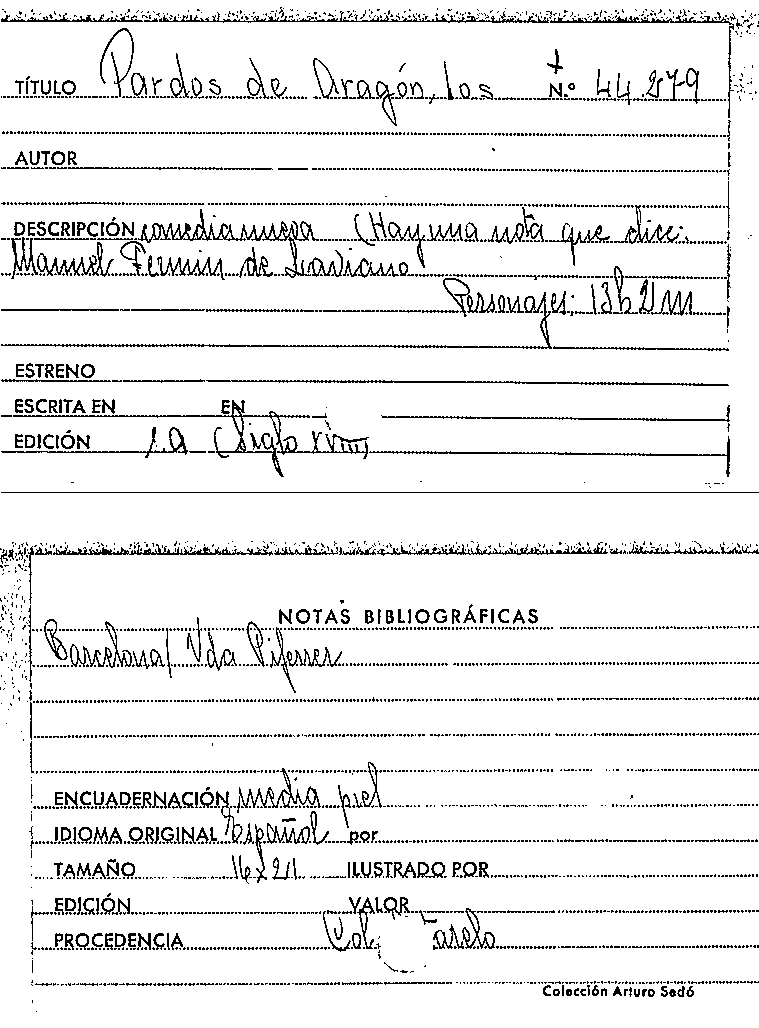 TÍTULO Pardos de Aragón, los N.º 44.279
AUTOR
DESCRIPCIÓN comedia nueva (Hay una nota que dice:
Manuel Fermin de Laviano
Personajes: 13h 2m
ESTRENO
ESCRITA EN EN
EDICIÓN s.a (Siglo XVIII)
NOTAS BIBLIOGRÁFICAS
Barcelona/ Vda Piferrer
ENCUADERNACIÓN media piel
IDIOMA ORIGINAL Español por
TAMAÑO 16x21 ILUSTRADO POR
EDICIÓN VALOR
PROCEDENCIA Col.
Colección Arturo Sedó